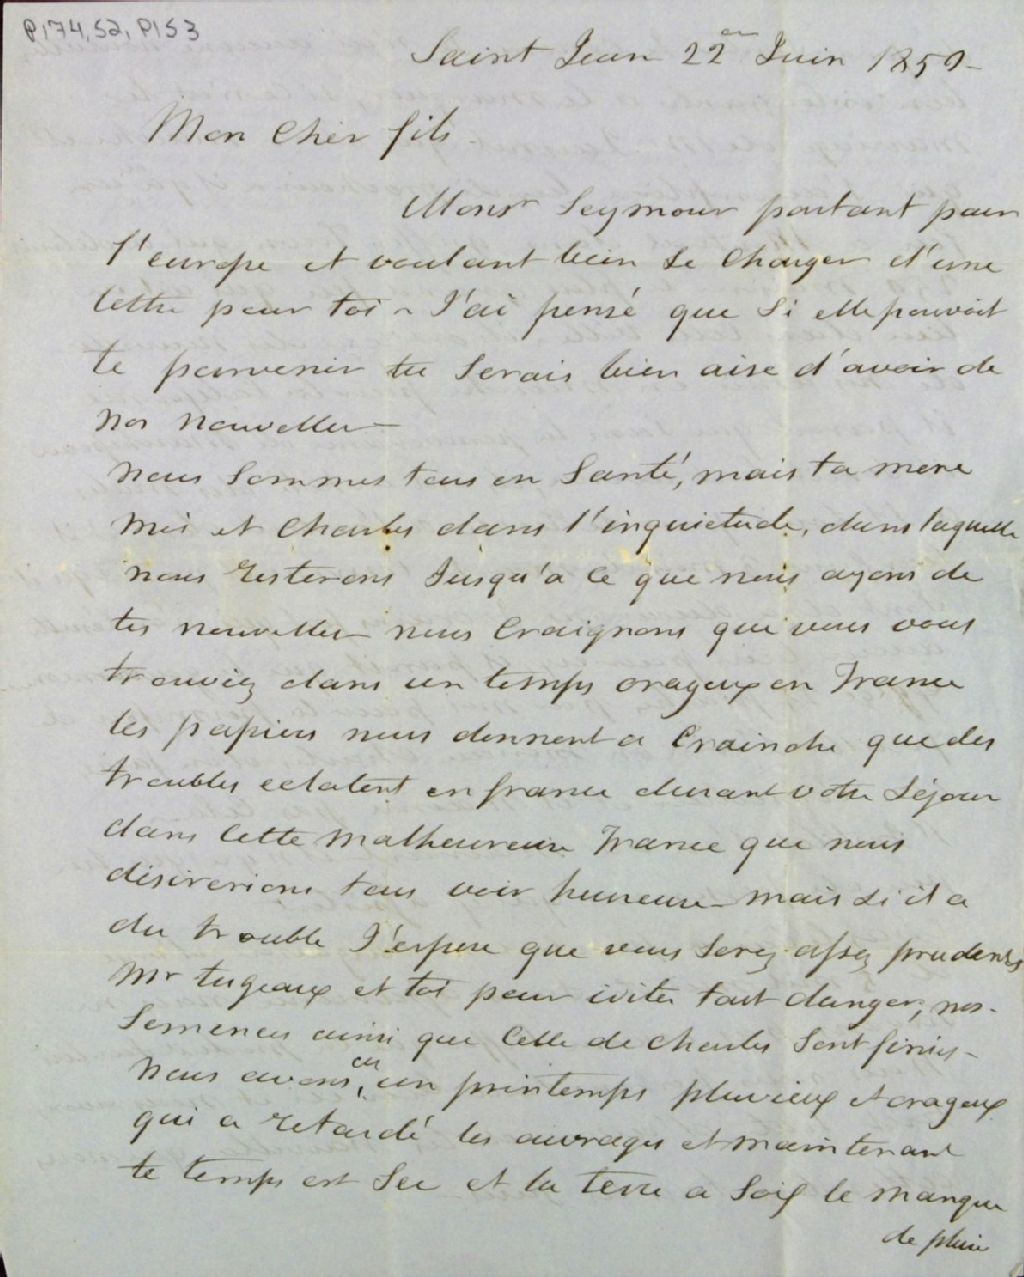 P174,S2,P153
Saint Jean 22en Juin 1850-
Mon Cher fils
Monsr Seymour partant pour
l'europe et voulant bien se Charger d'une
lettre pour toi - J'ai pensé que Si elle pouvoit
te parvenir tu Serais bien aise d'avoir de
nos nouvelles-
nous Sommes tous en Santé, mais ta mere
moi et Charles dans l'inquietude, dans laquelle
nous resterons Jusqu'a ce que nous ayons de
tes nouvelles nous Craignons que vous vous
trouviez dans un temps orageux en France
les papiers nous donnent a Craindre que des
troubles eclatent en france durant votre Séjour
dans Cette malheureuse France que nous
désirerions tous voir heureuse - mais Si il a
du trouble J'espere que vous Serez assez prudents
Mr turgeaux et toi pour eviter tout danger, nos-
Semences ainsi que Celle de Charles Sont finies-
Nous avons eu un printemps pluvieux et orageux
qui a retardé les ouvrages et maintenant
te temps est Sec et la terre a Soif le manque
de pluie